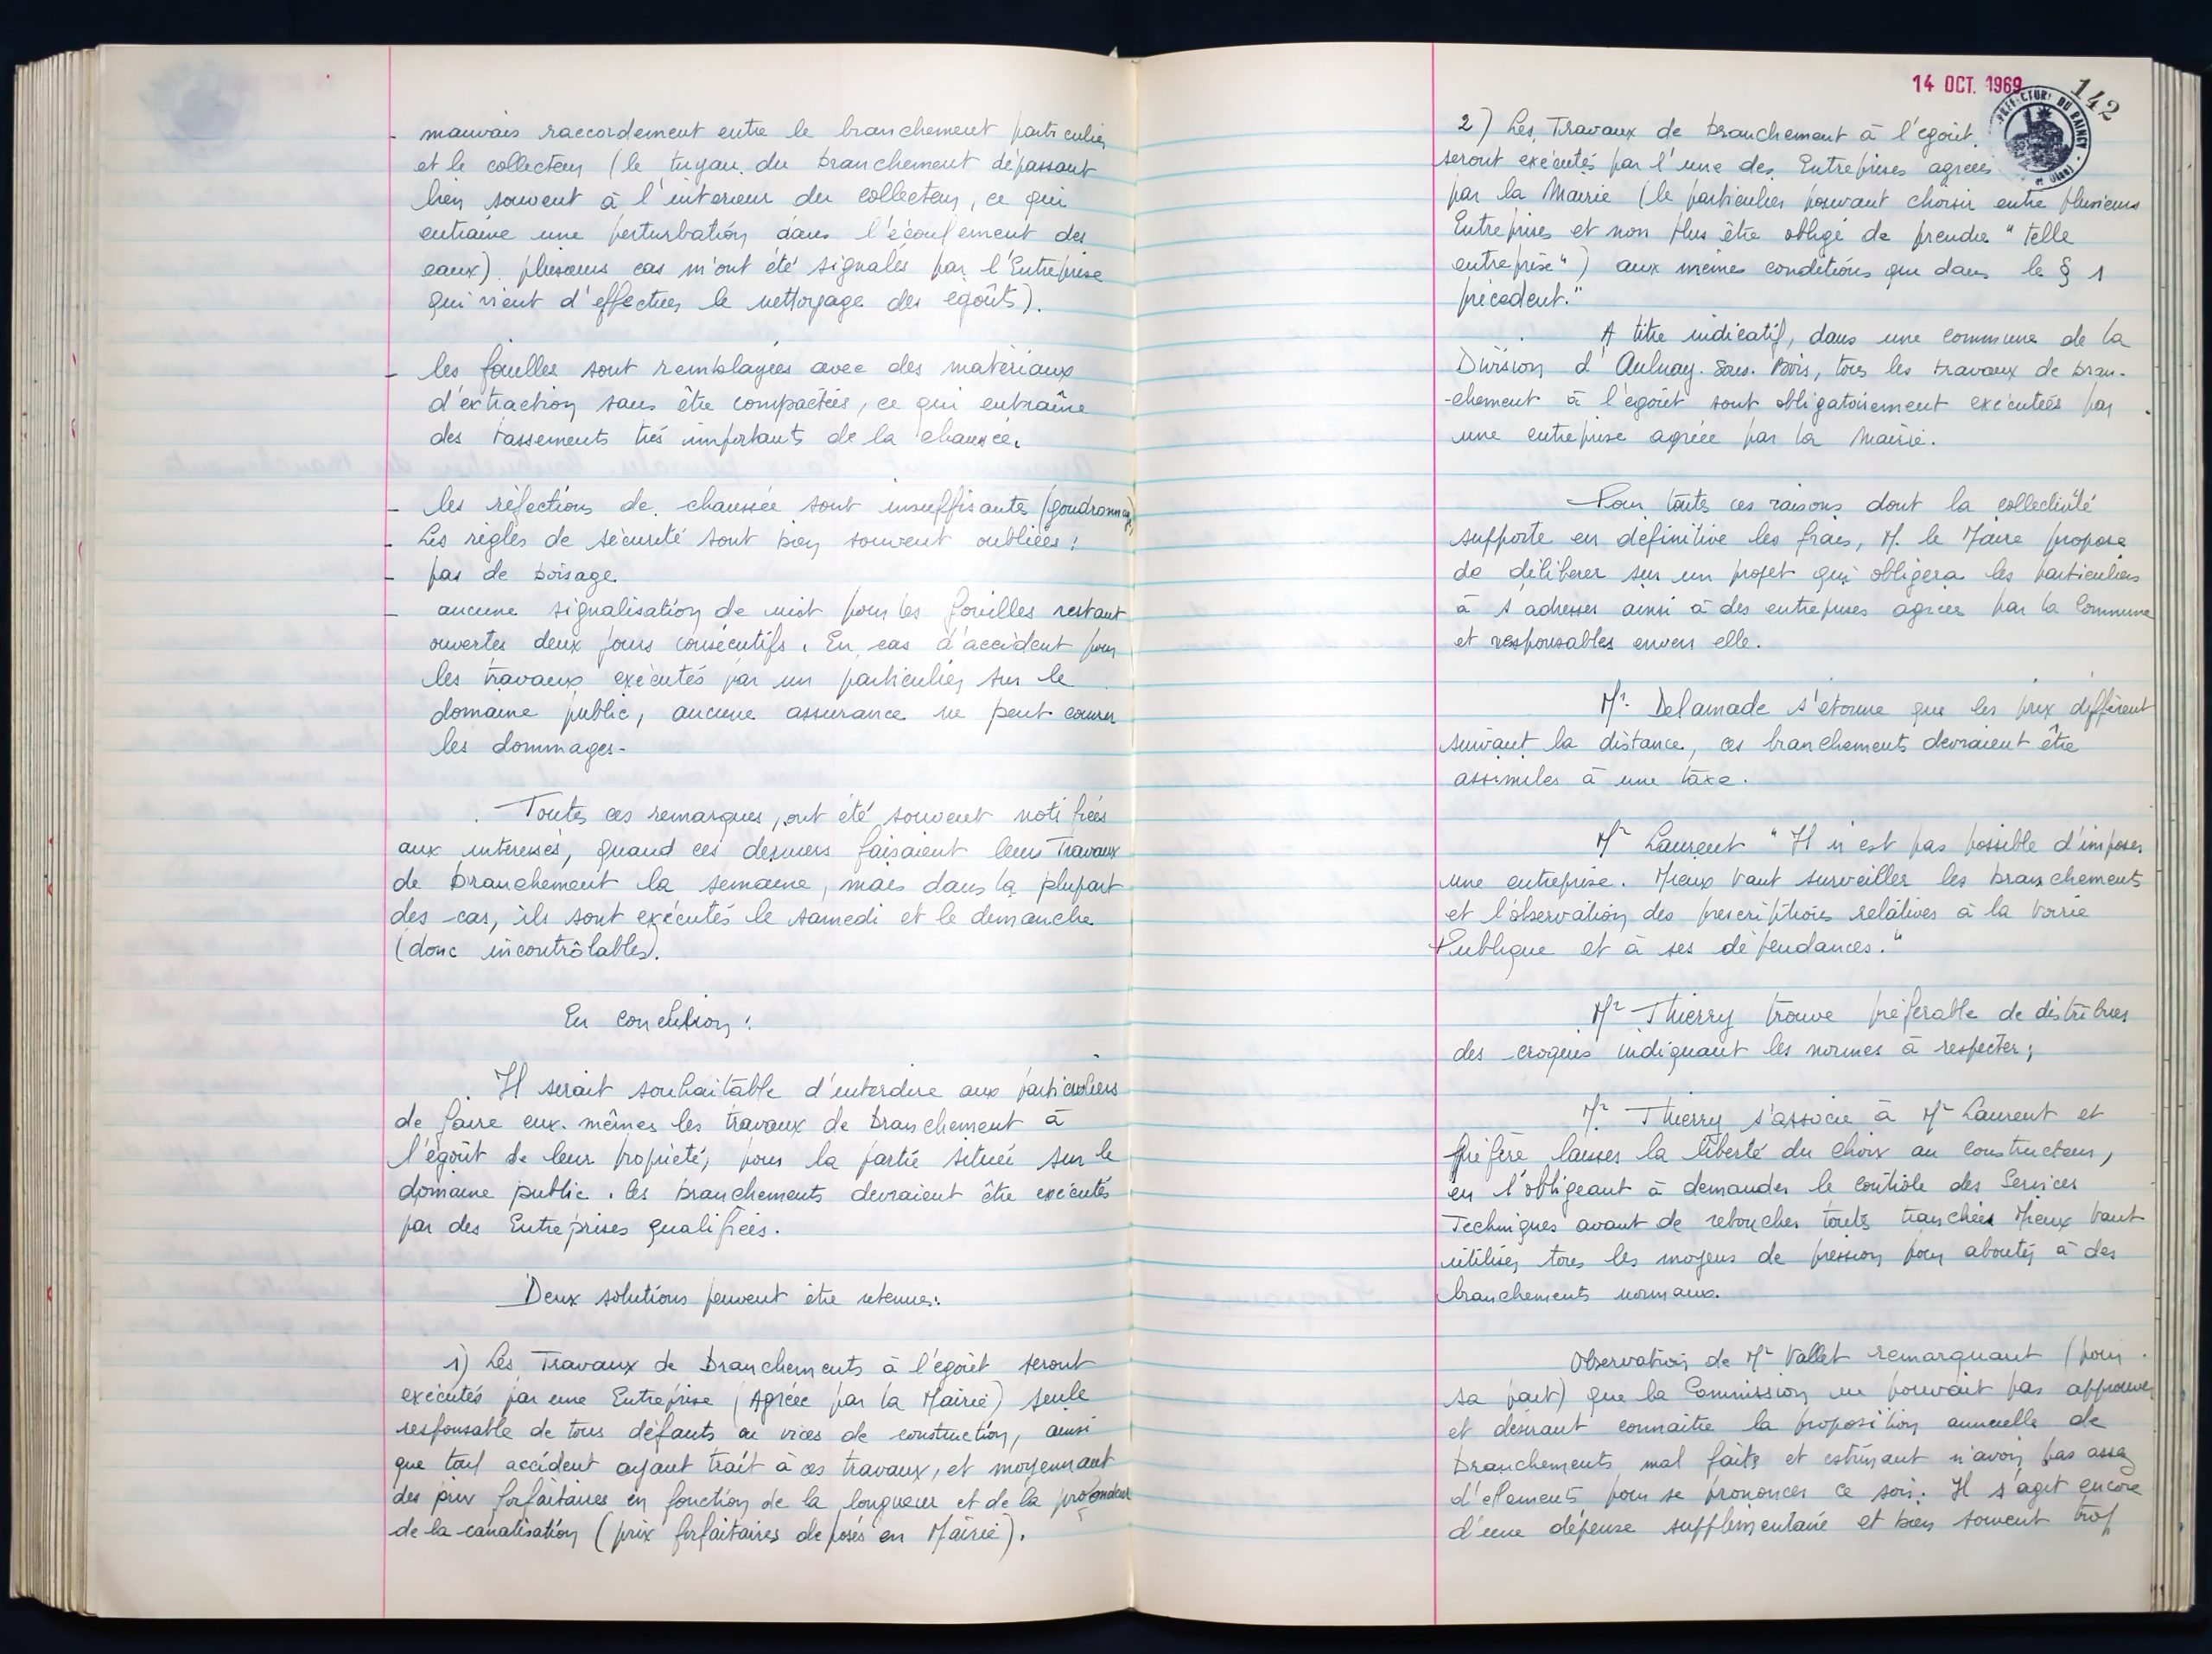 - mauvais raccordement entre le branchement particulier
et le collecteur (le tuyau du branchement dépassant
bien souvent à l'intérieur du collecteur, ce qui
entraîne une perturbation dans l'écoulement des
eaux). plusieurs cas m'ont été signalés par l'Entreprise
qui vient d'effectuer le nettoyage des égoûts).
- les fouilles sont remblayées avec des matériaux
d'extraction sans être compactées, ce qui entraîne
des tassements très importants de la chaussée.
- les réfections de chaussée sont insuffisantes (goudronnage)
- Les règles de sécurité sont bien souvent oubliées :
- pas de boisage
- aucune signalisation de nuit pour les fouilles restant
ouvertes deux jours consécutifs. En cas d'accident pour
les travaux exécutés par un particulier sur le
domaine public, aucune assurance ne peut couvrir
les dommages-
Toutes ces remarques, ont été souvent notifiées
aux intéressés, quand ces derniers faisaient leurs Travaux
de branchement la semaine, mais dans la plupart
des cas, ils sont exécutés le samedi et le dimanche
(donc incontrôlables).
En conclusion :
Il serait souhaitable d'interdire aux particuliers
de faire eux-mêmes les travaux de branchement à
l'égoût de leur propriété, pour la partie située sur le
domaine public. les branchements devraient être exécutés
par des Entreprises qualifiées.
Deux solutions peuvent être retenues:
1) Les Travaux de Branchements à l'égoût seront
exécutés par une Entreprise (Agréée par la Mairie) seule
responsable de tous défauts ou vices de construction, ainsi
que tout accident ayant trait à ces travaux, et moyennant
des prix forfaitaires en fonction de la longueur et de la profondeur
de la canalisation (prix forfaitaires déposés en Mairie).
14 OCT. 1969
142
PRÉFECTURE DU RAINCY
2) Les Travaux de branchement à l'égoût
seront exécutés par l'une des Entreprises agréées
par la Mairie (le particulier pouvant choisir entre plusieurs
Entreprises et non plus être obligé de prendre "telle
entreprise") aux mêmes conditions que dans le § 1
précédent."
A titre indicatif, dans une commune de la
Division d'Aulnay-Sous-Bois, tous les travaux de bran-
-chement à l'égoût sont obligatoirement exécutés par
une entreprise agréée par la Mairie.
Pour toutes ces raisons dont la collectivité
supporte en définitive les frais, M. le Maire propose
de délibérer sur un projet qui obligera les particuliers
à s'adresser ainsi à des entreprises agréées par la Commune
et responsables envers elle.
Mr. Delamade s'étonne que les prix diffèrent
suivant la distance, ces branchements devraient être
assimilés à une taxe.
Mr Laurent "Il n'est pas possible d'imposer
une entreprise. Mieux vaut surveiller les branchements
et l'observation des prescriptions relatives à la Voirie
Publique et à ses dépendances."
Mr Thierry trouve préférable de distribuer
des croquis indiquant les normes à respecter;
Mr Thierry s'associe à Mr Laurent et
préfère laisser la liberté du choix au constructeur,
en l'obligeant à demander le contrôle des Services
Techniques avant de reboucher toutes tranchées Mieux vaut
utiliser tous les moyens de pression pour aboutir à des
branchements normaux.
Observation de Mr Vallet remarquant (pour
sa part) que la Commission ne pouvait pas approuver
et désirant connaître la proposition annuelle de
branchements mal faits et estimant n'avoir pas assez
d'éléments pour se prononcer ce soir. Il s'agit encore
d'une dépense supplémentaire et bien souvent trop